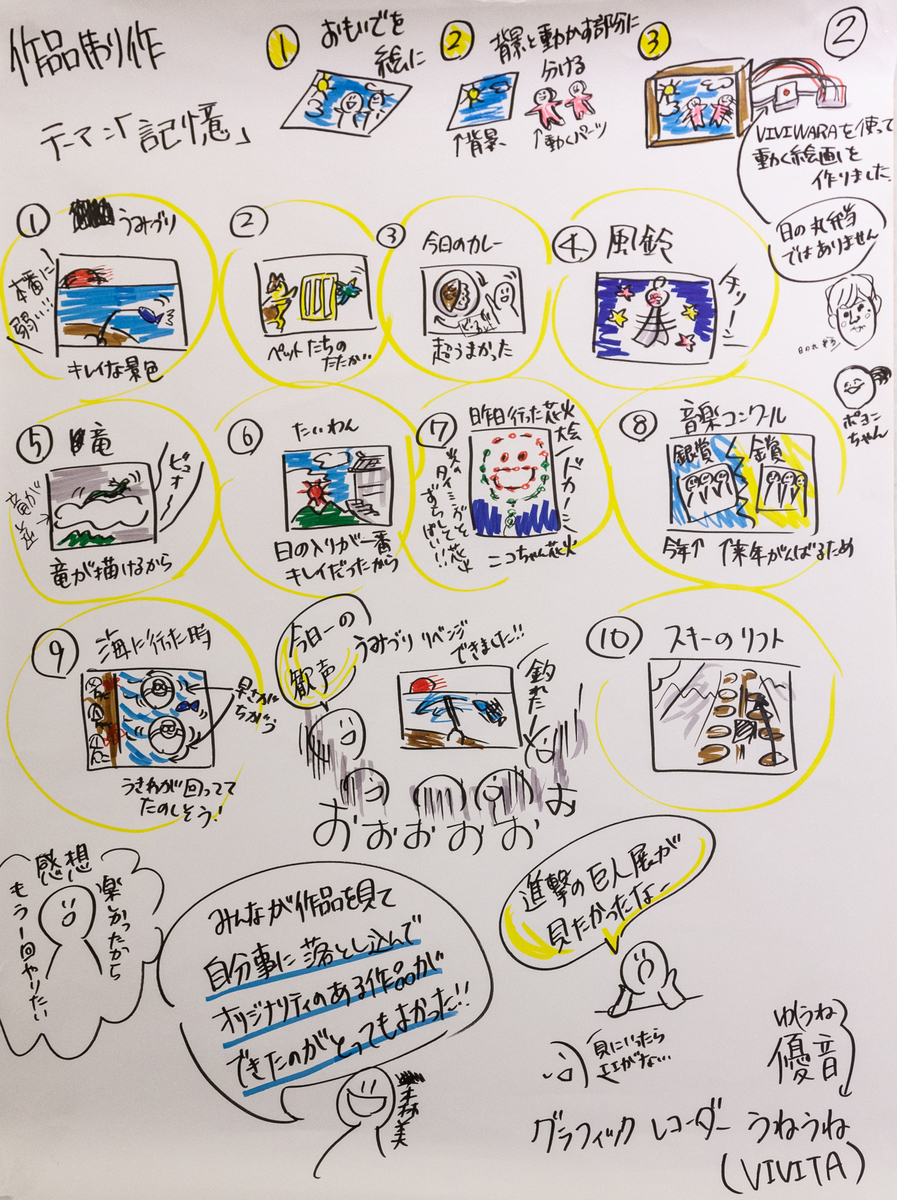 作品制作
テーマ「記憶」
①
おもいでを
絵に
②
背景と動かす部分に
分ける
↑背景
↑動くパーツ
③
②
VIVIWARAを使って
動く絵画を
作りました
日の丸弁当
ではありません
① うみづり
本番に
弱い!!
キレイな景色
②
ペットたちの
たたかい
③
今日のカレー
超うまかった
④ 風鈴
チリーン
ポヨン
ちゃん
⑤ 竜
ピュオー
竜が描けるから
⑥
たいわん
日の入りが一番
キレイだったから
⑦
昨日行った花火
大会
ドカーン
ニコちゃん花火
⑧ 音楽コンクール
銀賞
金賞
今年↑
↑来年がんばるため
⑨
海に行った時
早さが
ちがう
うきわが回ってて
たのしそう!
今日一の
歓声
うみづり リベンジ
できました!!
釣れたー
おおおおおお
⑩ スキーのリフト
感想
楽しかったから
もう一回やりたい
みんなが作品を見て
自分事に落とし込んで
オリジナリティのある作品が
できたのがとってもよかった!!
進撃の巨人展が
見たかったなー
ゆ(うね)
優音
グラフィックレコーダー うねうね
(VIVITA)